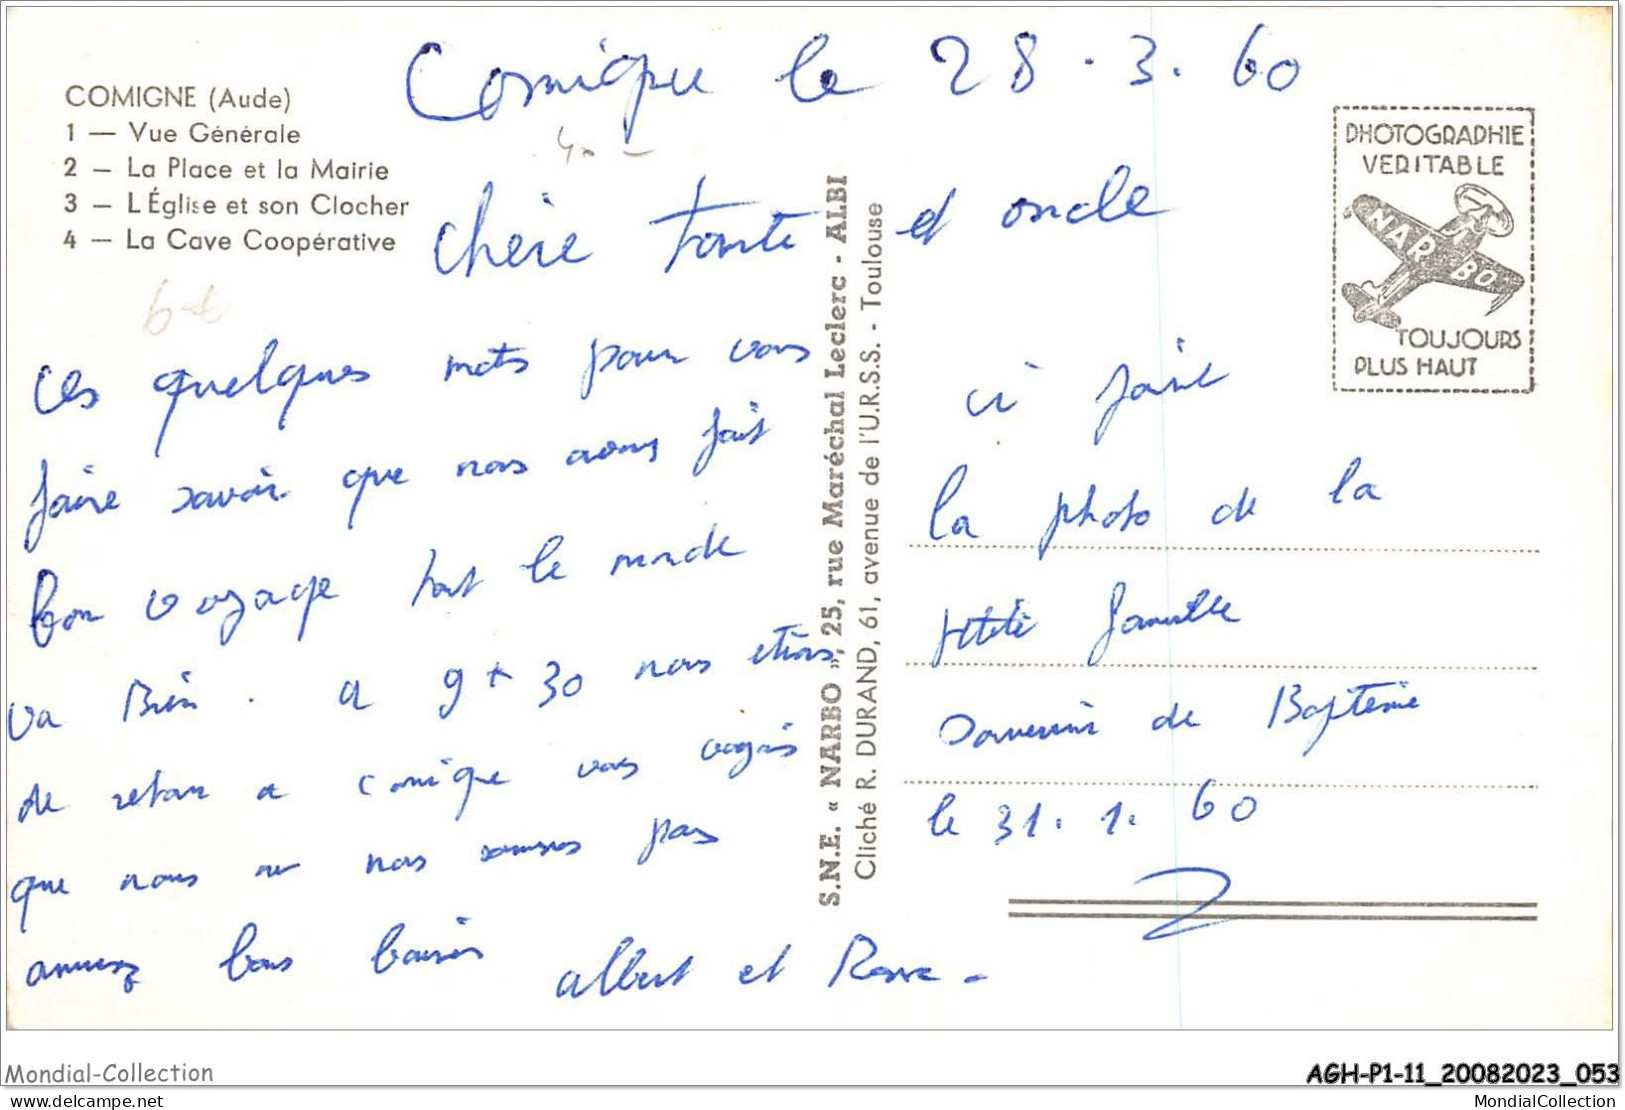 Comique le 28.3.60
COMIGNE (Aude)
1 — Vue Générale
2 — La Place et la Mairie
3 — L'Église et son Clocher
4 — La Cave Coopérative
chère tante et oncle
Ces quelques mots pour vous
faire savoir que nous avons fait
bon voyage tout le monde
va Bien. a 9 + 30 nous etions
de retour a comique vous voyais
que nous nous sommes pas
amusez bons baisés
albert et Rose -
ci joint
la photo de la
petite famille
souvenir de Baptême
le 31.1.60
S.N.E. « NARBO », 25, rue Maréchal Leclerc - ALBI
Cliché R. DURAND, 61, avenue de l'U.R.S.S. - Toulouse
PHOTOGRAPHIE
VERITABLE
NARBO
TOUJOURS
PLUS HAUT
Mondial-Collection
AGH-P1-11_20082023_053
delcampe.net
MondialCollection